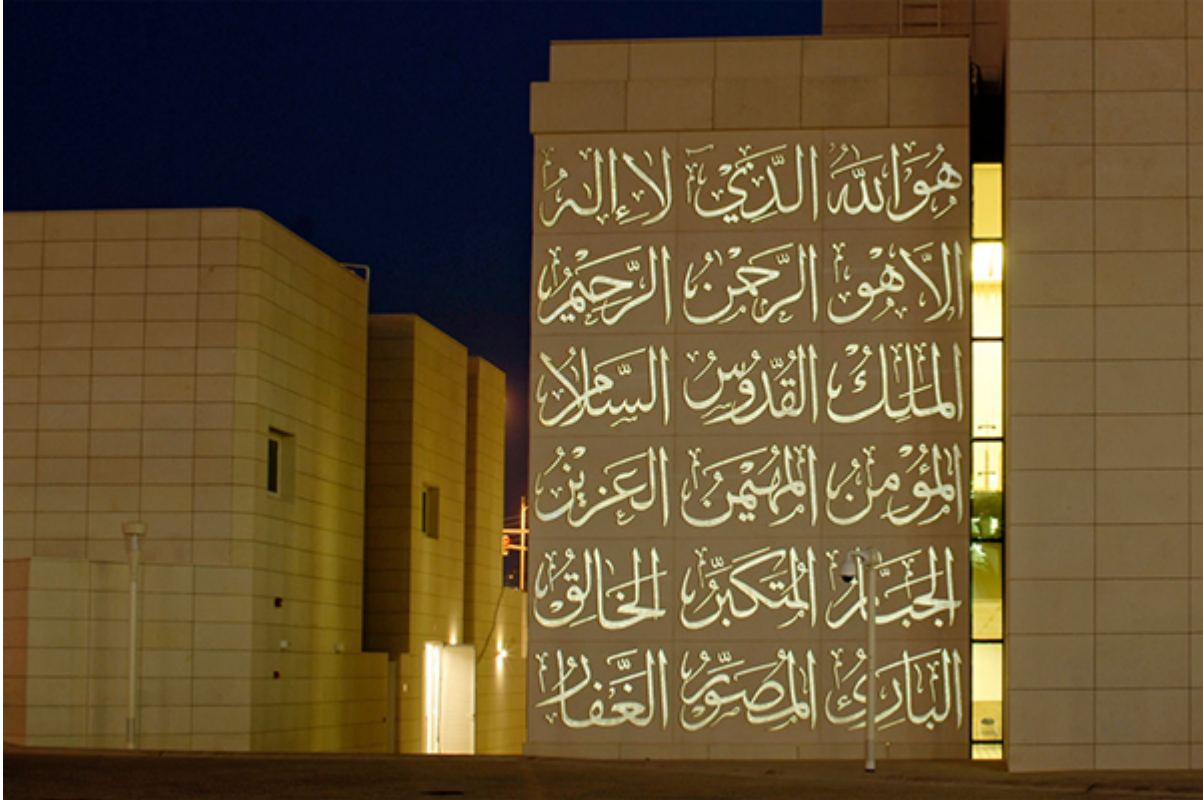 هُوَ اللهُ الَّذِي لَا إِلٰهَ
إِلَّا هُوَ الرَّحْمٰنُ الرَّحِيْمُ
المَلِكُ القُدُّوسُ السَّلَامُ
المُؤْمِنُ المُهَيْمِنُ العَزِيْزُ
الجَبَّارُ المُتَكَبِّرُ الخَالِقُ
البَارِئُ المُصَوِّرُ الغَفَّارُ